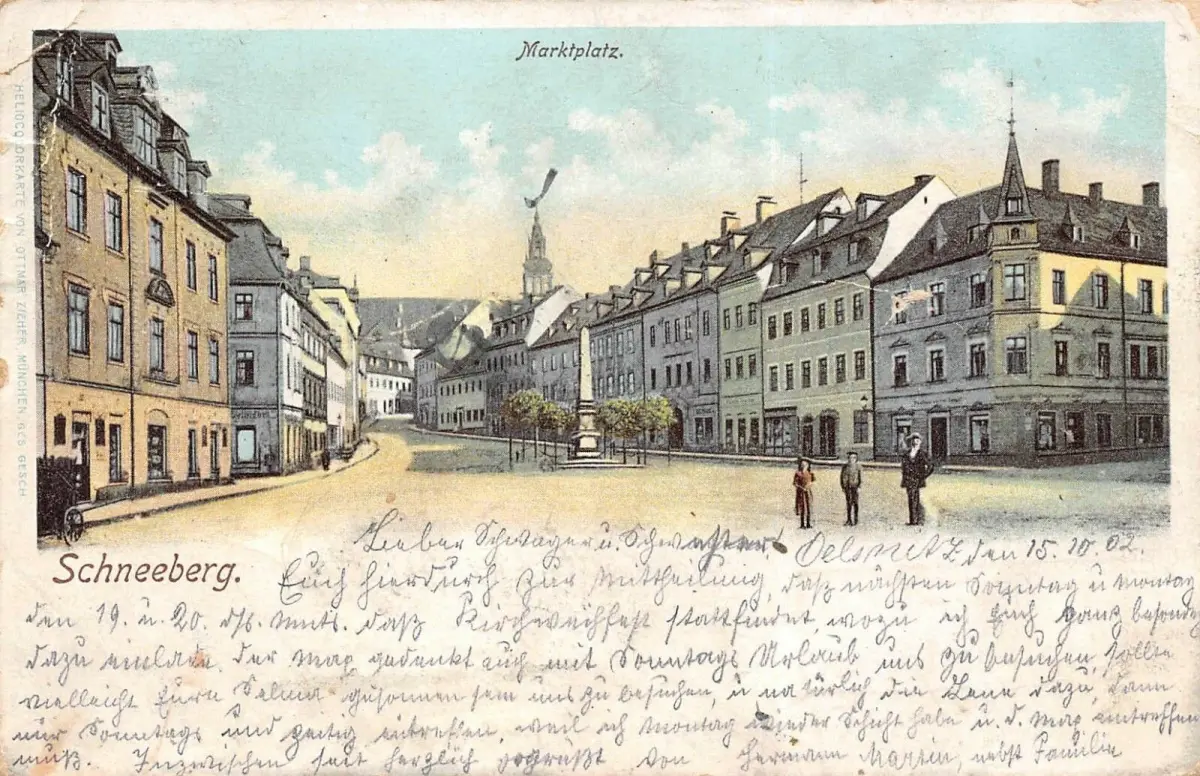 Marktplatz.
HELIOCOLORKARTE VON OTTMAR ZIEHER, MÜNCHEN. GES. GESCH.
Schneeberg.
Lieber Schwager u. Schwester! Oelsnitz den 15.10.02.
Euch hierdurch zur Mittheilung, daß nächsten Sonntag u Montag
den 19. u. 20. ds. Mts. daß Kirchweihfest stattfindet, wozu ich Euch ganz besonders
dazu einlade. Der Max gedenkt auch mit Sonntags Urlaub uns zu besuchen, sollte
vielleicht Eure Selma gesonnen sein uns zu besuchen, u natürlich die Lene dazu, dann
nur Sonntags und zeitig eintreffen, weil ich Montag wieder Schicht habe u. d. Max eintreffen
muß. Inzwischen seit herzlich gegrüßt von Hermann Martin, nebst Familie